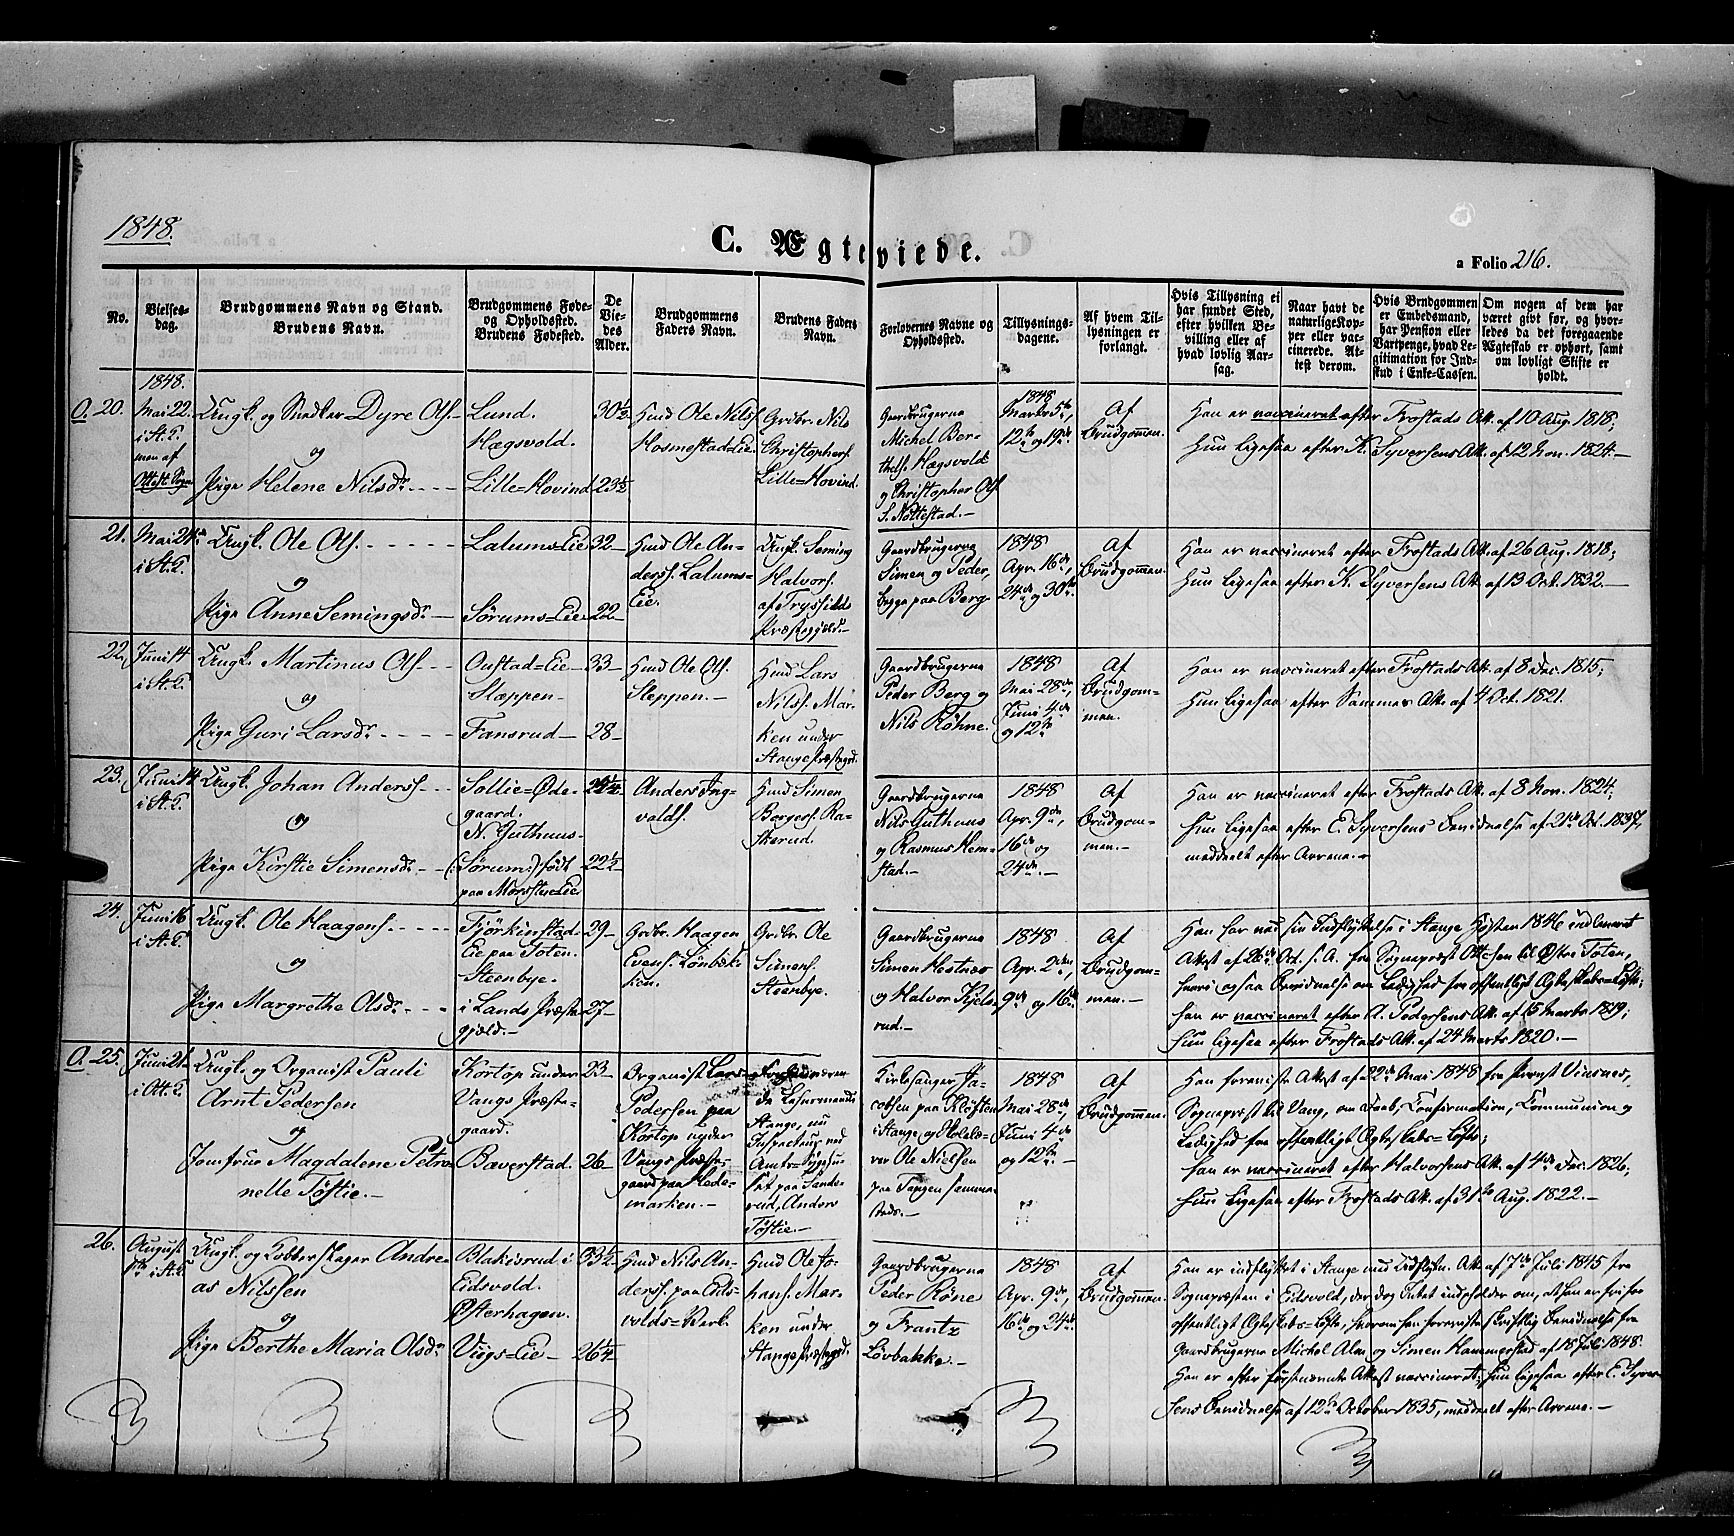 1848.
C. Ægteviede.
a Folio 216.
No.
Vielses-
dag.
Brudgommens Navn og Stand.
Brudens Navn.
Brudgommens Føde-
og Opholdssted.
Brudens Fødested.
De
Vie-
des
Alder.
Brudgommens
Faders Navn.
Brudens Faders
Navn.
Forlovernes Navne og
Opholdssted.
Tillysnings-
dagene.
Af hvem Til-
lysningen er
forlangt.
Hvis Tillysning ei
har fundet Sted,
efter hvilken Be-
villing eller af
hvad lovlig Aar-
sag.
Naar havt de
naturlige Kop-
per eller vac-
cinerede. At-
test derom.
Hvis Brudgommen
er Embedsmand,
har Pension eller
Vartpenge, hvad Le-
gitimation for Ind-
skud i Enke-Cassen.
Om nogen af dem har
været gift før, og hvor-
ledes da det foregaaende
Ægteskab er ophørt, samt
om lovligt Skifte er
holdt.
O. 20.
1848.
Mai 22.
i St. K.
men af
Ottest. Sogn
Ungk. og Snedker Dyre Ols.
og
Pige Helene Nilsdr.
Lund.
Hægsvold.
Lille-Hovind
30½
23½
Huusmd Ole Nils.
Hosmestad-Eie.
Grdbr. Nils
Christophers.
Lille-Hovind.
Gaardbrugerne
Michel Ber-
thels. Hægsvold
og Christopher Ols.
S. Nøttestad.
1848
Marts 5te,
12te og 19de.
Af
Brudgommen.
Han er vaccineret efter Frostads Att. af 10 Aug. 1818;
Hun ligesaa efter K. Syversens Att. af 12 Nov. 1824.
21.
Mai 24de
i St. K.
Ungk. Ole Ols.
og
Pige Anne Semingsdr.
Lalums-Eie
Sørums-Eie
32
22
Huusmd Ole An-
ders. Lalums-
Eie.
Ungk. Seming
Halvors.
af Tryssilds
Præstegjeld.
Gaardbrugerne
Simen og Peder,
begge paa Berg
1848
Apr. 16de,
24de og 30te.
Af
Brudgommen.
Han er vaccineret efter Frostads Att. af 26 Aug. 1818;
Hun ligesaa efter K. Syversens Att. af 13 Oct. 1832.
22.
Juni 14
i St. K.
Ungk. Martinus Ols.
og
Pige Guri Larsdr.
Oustad-Eie
Steppen
Fansrud
33
28
Huusmd Ole Ols.
Steppen.
Huusmd Lars
Nils. Mar-
ken under
Stange Præstegrd.
Gaardbrugerne
Peder Berg og
Nils Røhne.
1848
Mai 28de,
Juni 4de
og 12te
Af
Brudgom-
men.
Han er vaccineret efter Frostads Att. af 8 Dec. 1815;
Hun ligesaa efter Sammes Att. af 4 Oct. 1821.
23.
Juni 14
i St. K.
Ungk. Johan Anders.
og
Pige Kirstie Simensdr.
Sollie-Øde-
gaard.
N. Guthuus-
(:Sørum:) født
paa Morstue-Eie
22½
Anders Ing-
volds.
Huusmd Simen
Borgers. Ra-
skerud.
Gaardbrugerne
Nils Guthuus
og Rasmus Hem-
stad.
1848
Apr. 9de,
16de og
24de.
Af
Brudgom-
men.
Han er vaccineret efter Frostads Att. af 8 Nov. 1824;
Hun ligesaa efter E. Syversens Bevidnelse af 21de Oct. 1837,
meddeelt efter Arrene.
24.
Juni 16
i St. K.
Ungk. Ole Haagens.
og
Pige Margrethe Olsdr.
Fjørkinstad-
Eie paa Toten.
Steenbye.
i Lands Præste-
gjeld.
29
27
Grdbr. Haagen
Evens. Lønbæk-
ken.
Grdbr. Ole
Simens.
Steenbye.
Gaardbrugerne
Simen Hestnes
og Halvor Kjels-
rud.
1848
Apr. 2den,
9de og 16de
Af
Brudgom-
men.
Han har ved sin Indflyttelse i Stange Høsten 1846 indleveret
Attest af 26de Oct. s. A. fra Sognepræst Ottesen til Østre Toten,
hvori ogsaa Bevidnelse om Ledighed fra offentligt Ægteskabs-Løfte;
Han er vaccineret efter A. Pedersens Att. af 15 Marts 1819;
Hun ligesaa efter Frostads Att. af 24 Marts 1820.
O. 25.
Juni 21
i Ott. K.
Ungk. og Organist Pauli
Arnt Pedersen
og
Jomfrue Magdalene Petro-
nelle Tøstie.
Kortop under
Vangs Præste-
gaard.
Bæverstad.
23
26
Organist Lars
Pedersen paa
Kortop under
Vangs Præste-
gaard paa Hede-
marken.
da Lehnsmand i
Stange, nu
Inspecteur ved
Amts-Sygehu-
set paa Sande-
rud, Anders
Tøstie.
Kirkesanger Ja-
cobsen paa Kløften
i Stange og Skolelæ-
rer Ole Nielsen
paa Tangen samme-
steds.
1848
Mai 28de,
Juni 4de
og 12te
Af
Brudgommen.
Han foreviste Attest af 22de Mai 1848 fra Provst Vinsnes,
Sognepræst til Vang, om Daab, Confirmation, Communion og
Ledighed fra offentligt Ægteskabs-Løfte;
Han er vaccineret efter Halvorsens Att. af 4de Dec. 1826.
Hun ligesaa efter Frostads Att. af 31te Aug. 1822.
26.
August
i St. K.
Ungk. og Kobberslager Andre-
as Nilssen
og
Pige Berthe Maria Olsdr.
Blakisrud i
Eidsvold.
Østerhagen.
Viigs-Eie
33½
26¼
Huusmd Nils An-
ders. paa Eids-
volds-Verk.
Huusmd Ole Jo-
hans. Mar-
ken under
Stange Præstegrd.
Gaardbrugerne
Peder Røne
og Frantz
Løvbakke.
1848
Apr. 9de,
16de og 24de.
Af
Brudgommen.
Han er indflyttet i Stange med Udflytn. Att. af 17de Juli 1845 fra
Sognepræsten i Eidsvold, der dog Intet indeholder om, at han er fri for
offentligt Ægteskabs-Løfte, hvorom han foreviste skriftlig Bevidnelse fra
Gaardbrugerne Michel Alm og Simen Hammerstad af 18 Juli 1848.
Han er efter førstnævnte Attest vaccineret; Hun ligesaa efter E. Syver-
sens Bevidnelse af 12te October 1835, meddeelt efter Arrene.